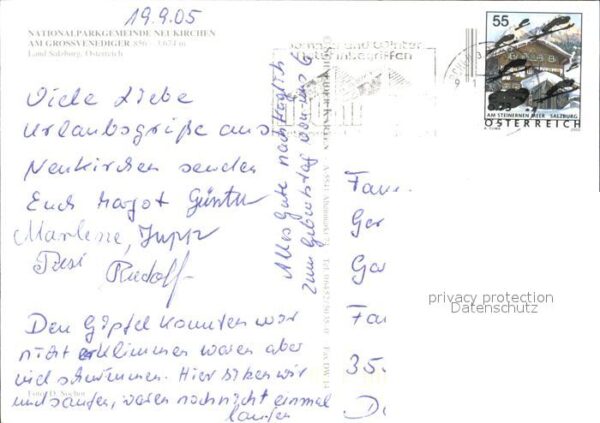 19.9.05
NATIONALPARKGEMEINDE NEUKIRCHEN
AM GROSSVENEDIGER 856 - 3.674 m
Land Salzburg, Österreich
Viele Liebe
Urlaubsgrüße aus
Neukirchen senden
Euch Margot Günter
Marlene, Jupp
Resi Rudolf
Den Gipfel konnten wir
nicht erklimmen waren aber
viel schwimmen. Hier sitzen wir
und saufen, waren noch nicht einmal
laufen
Foto: D. Sochor
Alles Gute nachträglich
zum Geburtstag von uns
Sommer und Winter
55
AM STEINERNEN MEER SALZBURG
ÖSTERREICH
Fam
Ger
Gar
Fam
35.
D
privacy protection
Datenschutz